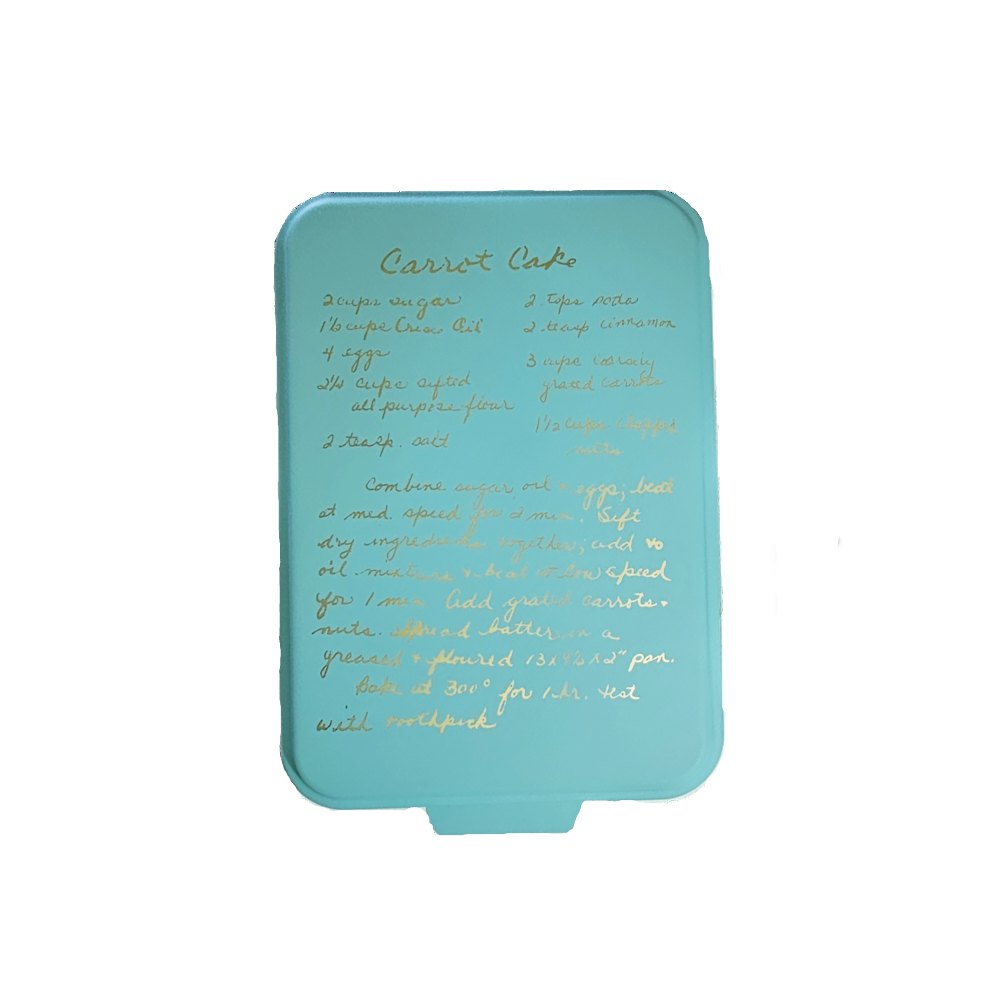 Carrot Cake
2 cups sugar
1½ cups Crisco Oil
4 eggs
2¼ cups sifted
all purpose flour
2 teasp. salt
2 tsps soda
2 teasp cinnamon
3 cups coarsely
grated carrots
1½ cups chopped
nuts
Combine sugar oil & eggs; beat
at med. speed for 2 min. Sift
dry ingredients together; add to
oil mixture & beat at low speed
for 1 min. Add grated carrots &
nuts. Spread batter in a
greased & floured 13x9½x2" pan.
Bake at 300° for 1 hr. test
with toothpick